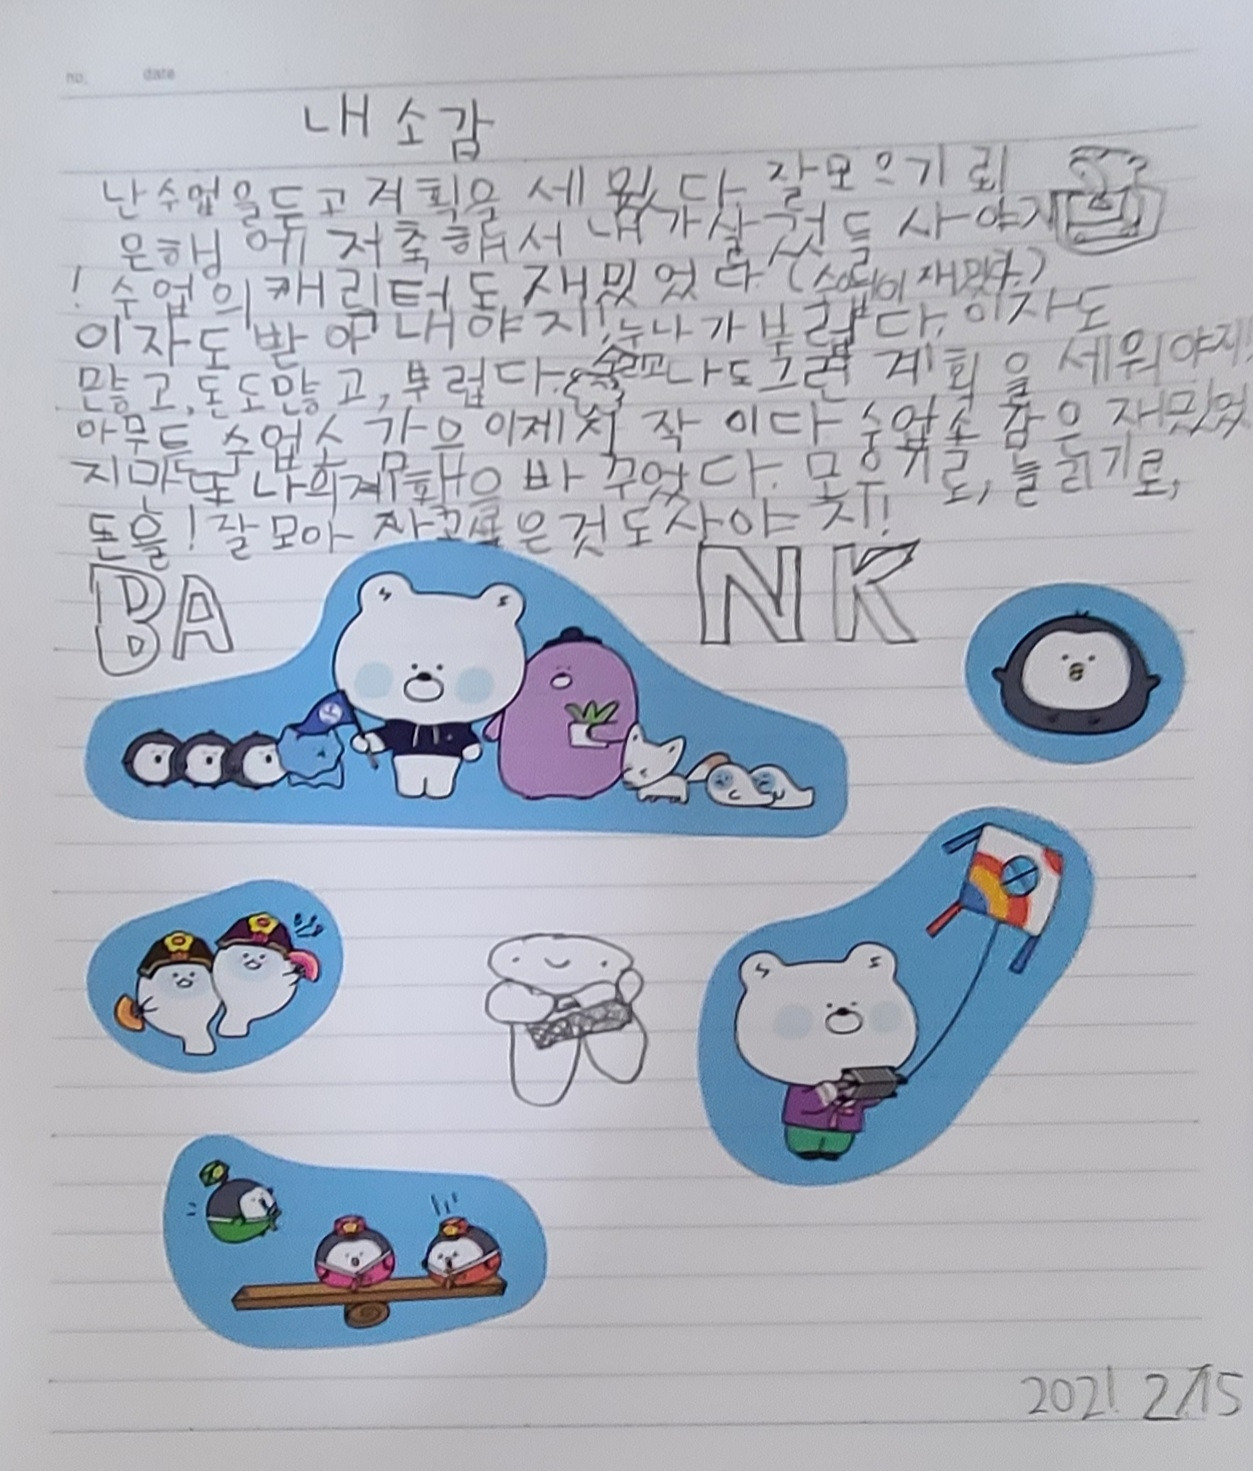 no. date
내 소감
난 수업을 듣고 계획을 세웠다. 잘모으기로
은행에 저축해서 내가살것들 사야지
! 수업의 캐릭터도 재밌었다. (수업이 재밌다.)
이자도 받아 내야지! 누나가 부럽다. 이자도
많고, 돈도많고, 부럽다. 나도그런 계획을 세워야지!
아무튼 수업소감은 이제 시작이다 수업소감은 재밌었
지만 또 나의계획을 바꾸었다. 모우기로, 늘리기로,
돈을! 잘모아 작은것도사야지!
BA NK
2021 2/15